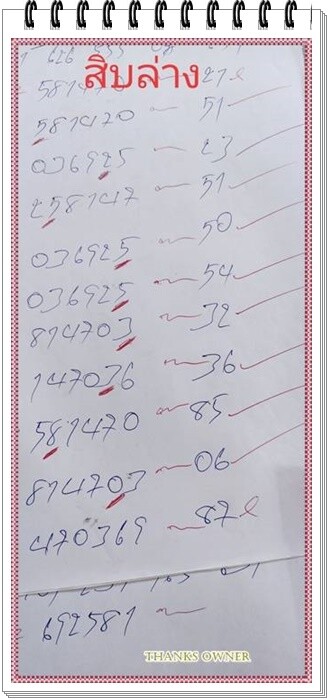 สิบล่าง
581470 ~ 51
036925 ~ 23
258147 ~ 51
036925 ~ 50
036925 ~ 54
814703 ~ 32
147036 ~ 36
581470 ~ 85
814703 ~ 06
470369 ~ 87
692581 ~
THANKS OWNER